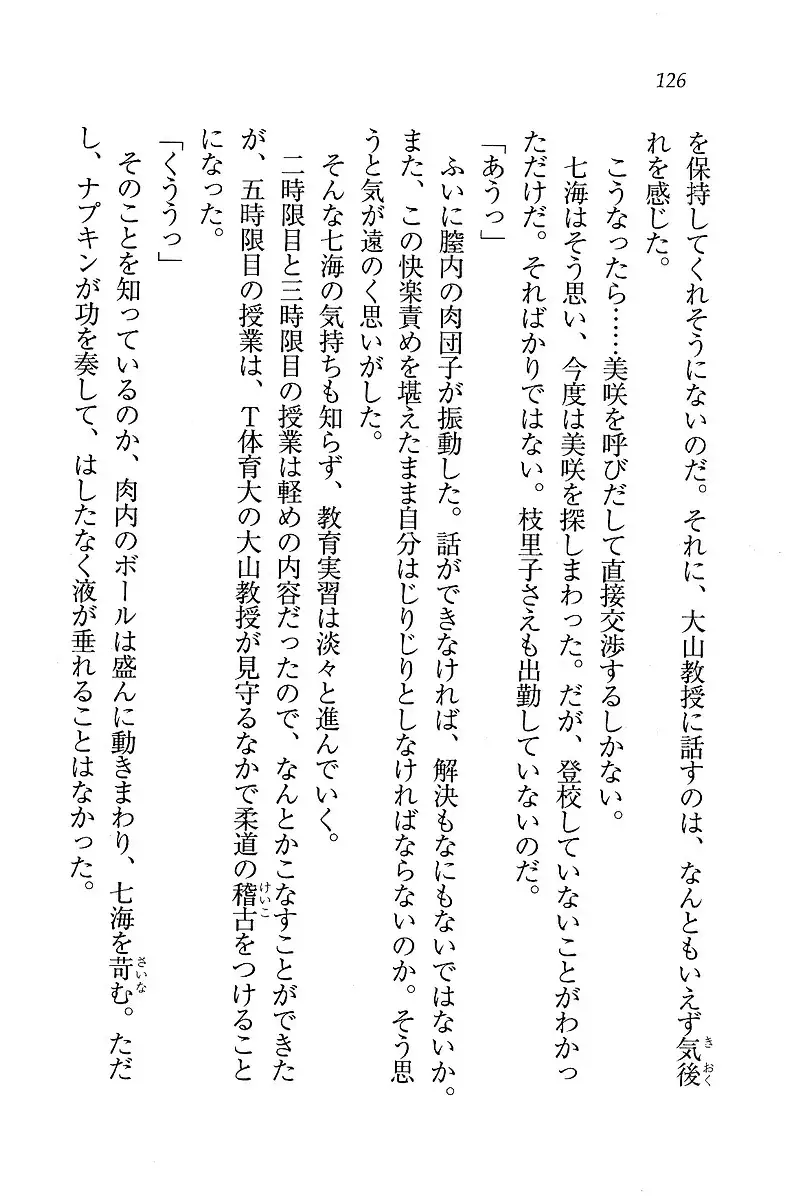 126
を保持してくれそうにないのだ。それに、大山教授に話すのは、なんともいえず気後
れを感じた。
こうなったら……美咲を呼びだして直接交渉するしかない。
七海はそう思い、今度は美咲を探しまわった。だが、登校していないことがわかっ
ただけだ。そればかりではない。枝里子さえも出勤していないのだ。
「あうっ」
ふいに膣内の肉団子が振動した。話ができなければ、解決もなにもないではないか。
また、この快楽責めを堪えたまま自分はじりじりとしなければならないのか。そう思
うと気が遠のく思いがした。
そんな七海の気持ちも知らず、教育実習は淡々と進んでいく。
二時限目と三時限目の授業は軽めの内容だったので、なんとかこなすことができた
が、五時限目の授業は、T体育大の大山教授が見守るなかで柔道の稽古をつけること
になった。
「くううっ」
そのことを知っているのか、肉内のボールは盛んに動きまわり、七海を苛む。ただ
し、ナプキンが功を奏して、はしたなく液が垂れることはなかった。
きおく
けいこ
さいな